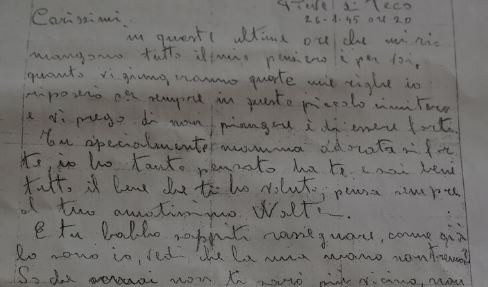 Pieve di Teco
Carissimi. 26-1-45 ore 20
in queste ultime ore che mi ri
mangono tutto il mio pensiero è per voi,
quando vi giungeranno queste mie righe io
riposerò per sempre in questo piccolo cimitero
e vi prego di non piangere e di essere forti.
Tu specialmente mamma adorata sii for
te io ho tanto pensato ha te e sai bene
tutto il bene che ti ho voluto, pensa sempre
al tuo amatissimo Walt
E tu babbo sappiti rassegnare, come già
lo sono io, vedi che la mia mano non trema?
So che ormai non ti sarò più vicino, non